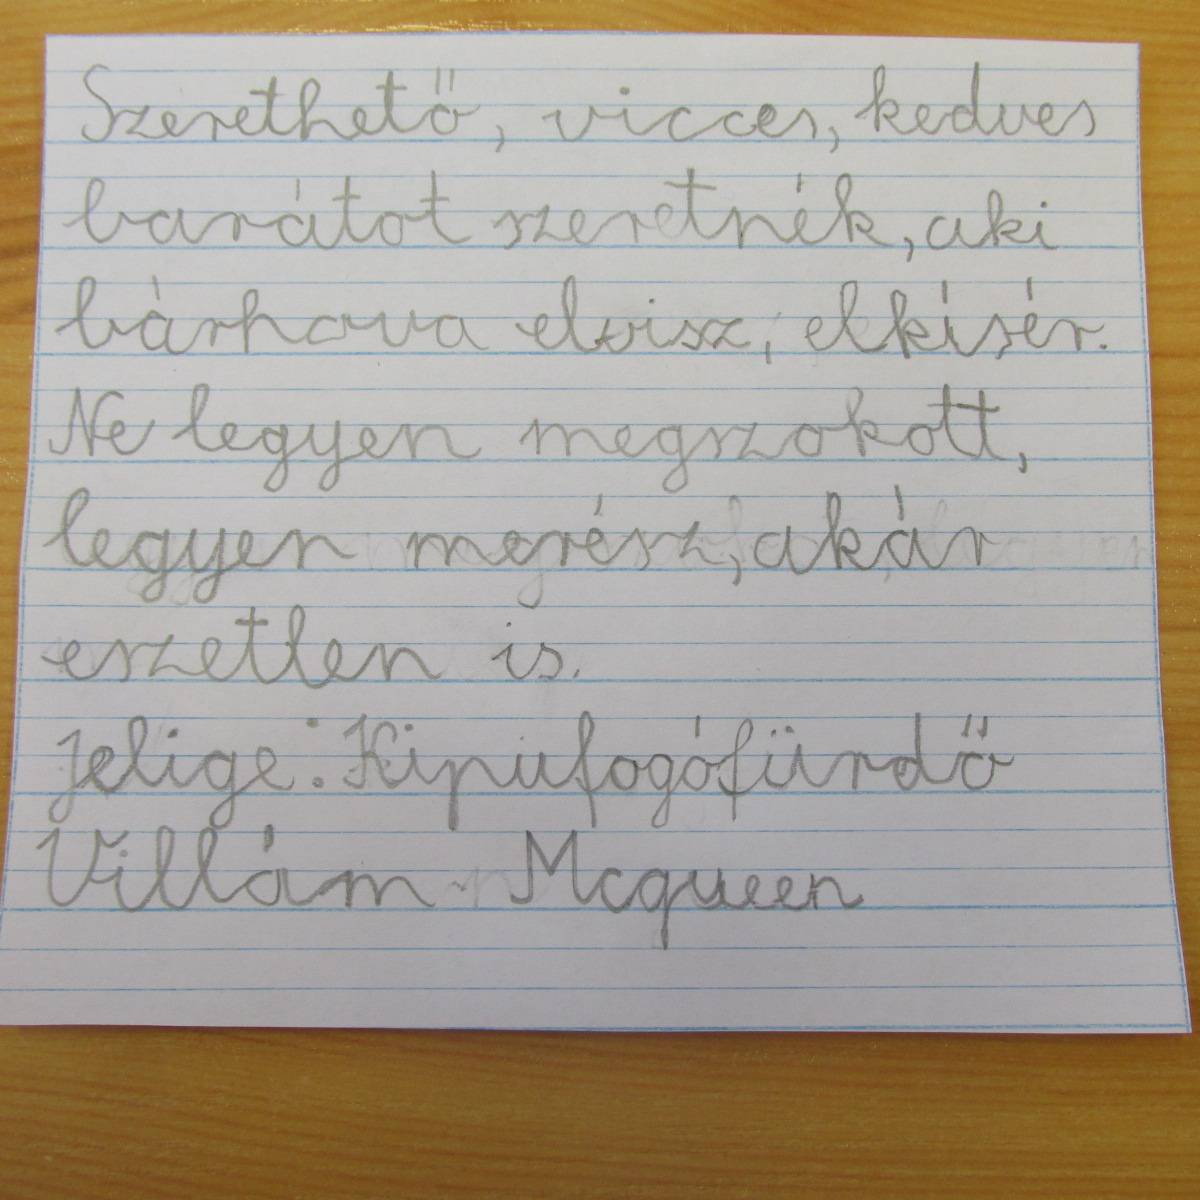 Szerethető, vicces, kedves
barátot szeretnék, aki
bárhova elvisz, elkísér.
Ne legyen megszokott,
legyen merész, akár
eszetlen is.
Jelige: Kipufogófürdő
Villám Mcqueen